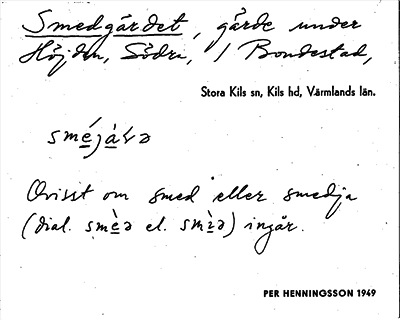 Smedgärdet, gärde under
Höjden, Södra, / Bondestad,
Stora Kils sn, Kils hd, Värmlands län.
Ovisst om smed eller smedja
(dial. smè̱ə el. smı̱̀ə) ingår.
PER HENNINGSSON 1949